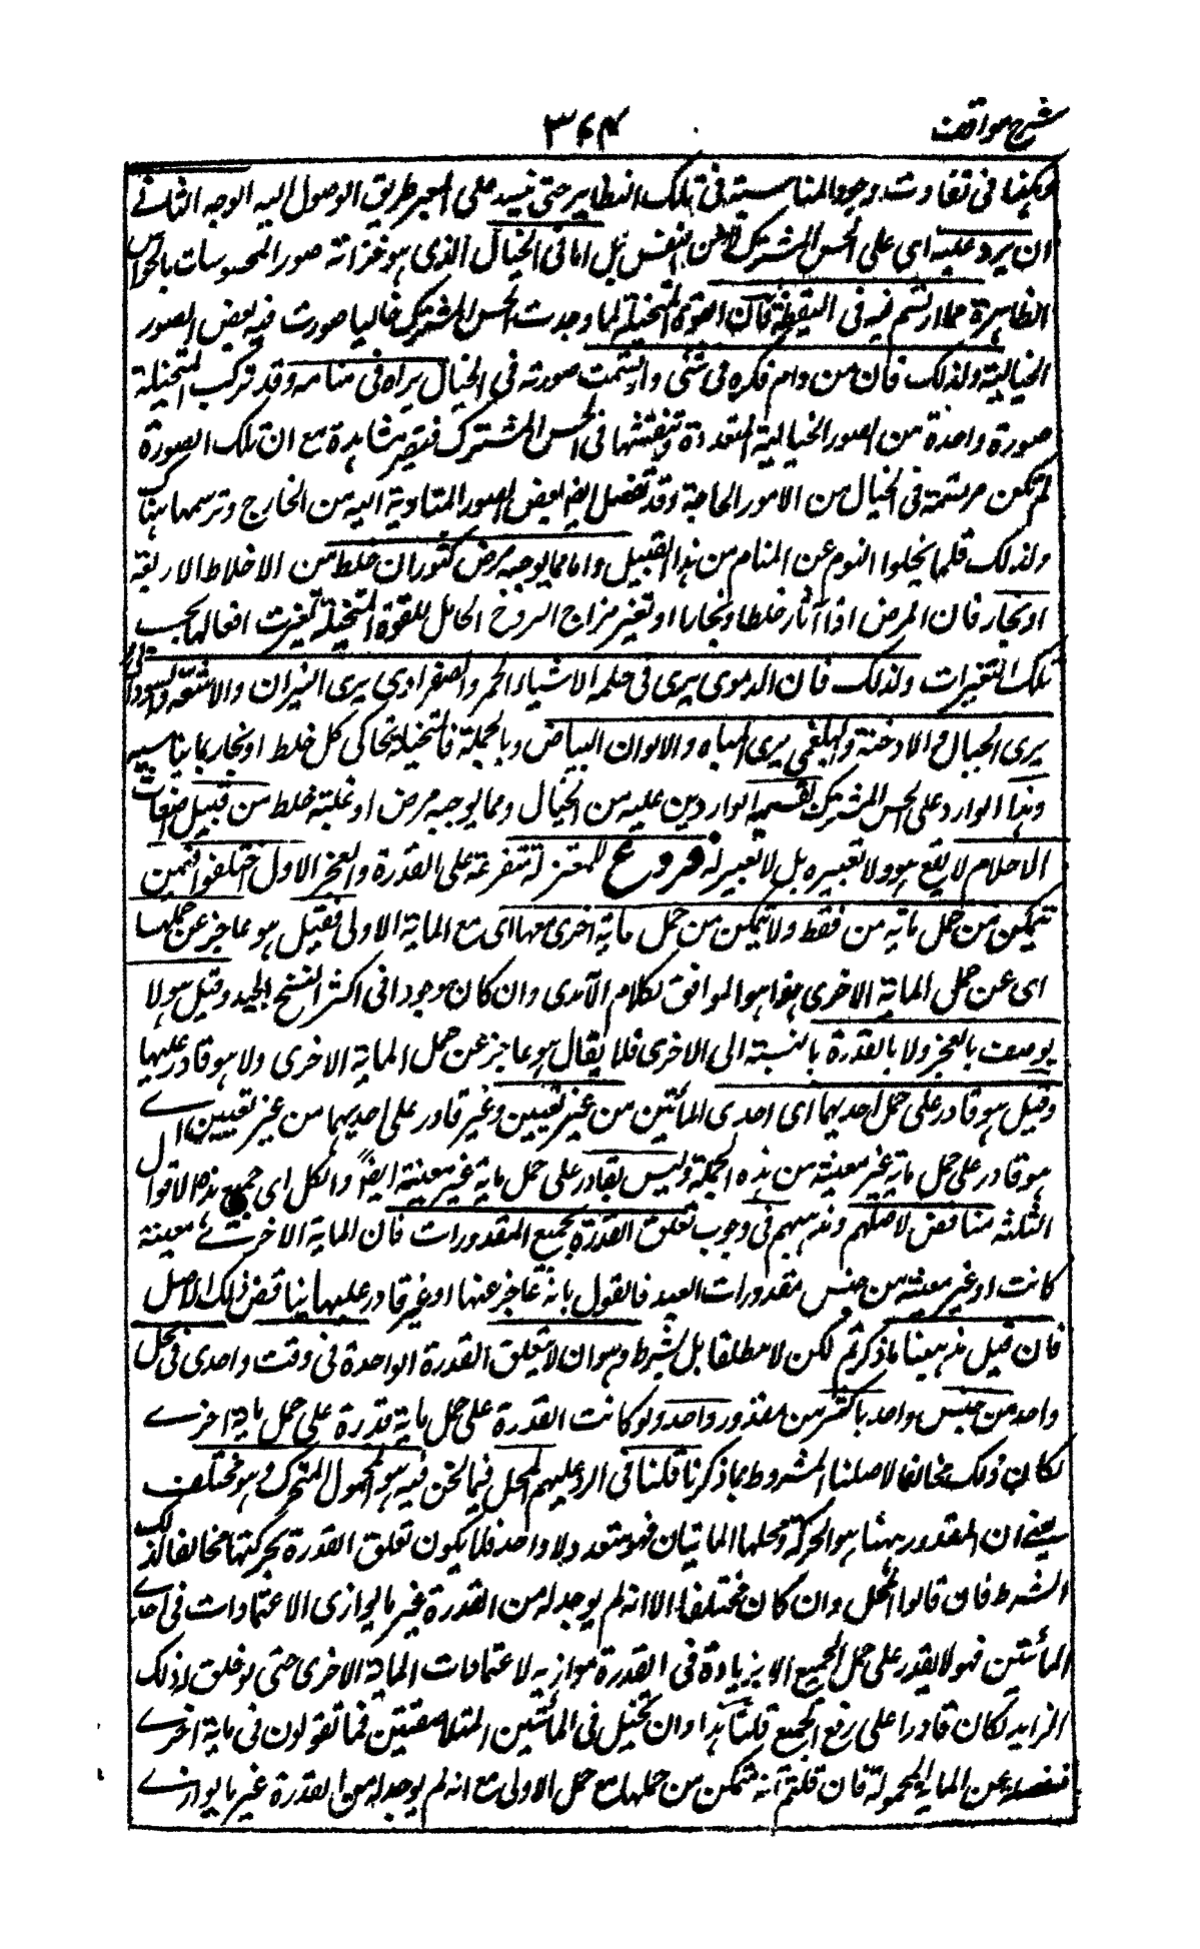 شرح مواقف
۳۶۴
وهكذا فى تفاوت وجوه المناسبة فى تلك النظاير حتى ينسد على المعبر طريق الوصول اليه الوجه الثانى
ان يرد عليه اى على الحس المشترك لا من النفس بل اما فى الخيال الذى هو خزانة صور المحسوسات بالحواس
الظاهرة مما ارتسم فيه فى اليقظة فان القوة المتخيلة لما وجدت الحس المشترك خاليا صورت فيه بعض الصور
الخيالية ولذلك فان من دام فكره فى شئ وارتسمت صورته فى الخيال يراه فى منامه وقد تركب المتخيلة
صورة واحدة من الصور الخيالية المتعددة وتنقشها فى الحس المشترك فتصير مشاهدة مع ان تلك الصورة
لم تكن مرتسمة فى الخيال من الامور الخارجة وقد تفصل ايضا بعض الصور المتادية اليه من الخارج وترسمها هناك
ولذلك قلما يخلوا النوم عن المنام من هذا القبيل واما مما يوجبه مرض كثوران خلط من الاخلاط الاربعة
او بخار فان المرض اذا آثار خلطا او بخارا او تغير مزاج الروح الحامل للقوة المتخيلة تغيرت افعالها بحسب
تلك التغيرات ولذلك فان الدموى يرى فى حلمه الاشياء الحمر والصفراوى يرى النيران والاشعة والسوداوى
يرى الجبال والادخنة والبلغمى يرى المياه والالوان البياض وبالجملة فالمتخيلة تحاكى كل خلط او بخار بما يناسبه
وهذا الوارد على الحس المشترك بقسميه الواردين عليه من الخيال ومما يوجبه مرض او غلبة خلط من قبيل اضغاث
الاحلام لا يقع هو ولا تعبيره بل لا تعبير له فروع للمعتزلة متفرعة على القدرة والعجز الاول اختلفوا فيمن
يتمكن من حمل مائة من فقط ولا يتمكن من حمل مائة اخرى معها اى مع الماية الاولى فقيل هو عاجز عن حملها
اى عن حمل الماية الاخرى هذا هو الموافق لكلام الآمدى وان كان موجودا فى اكثر النسخ الجيد وقيل هو لا
يوصف بالعجز ولا بالقدرة بالنسبة الى الاخرى فلا يقال هو عاجز عن حمل الماية الاخرى ولا هو قادر عليها
وقيل هو قادر على حمل احديهما اى احدى المأتين من غير تعيين وغير قادر على احديهما من غير تعيين اى
هو قادر على حمل ماية غير معينة من هذه الجملة وليس بقادر على حمل ماية غير معينة ايضا والكل اى جميع هذه الاقوال
الثلثة مناقض لاصلهم ومذهبهم فى وجوب تعلق القدرة بجميع المقدورات فان الماية الاخرى معينة
كانت او غير معينة من جنس مقدورات العبد فالقول بانه عاجز عنها او غير قادر عليها يناقض ذلك الاصل
فان قيل مذهبنا ما ذكرتم لكن لا مطلقا بل بشرط وهو ان لا يتعلق القدرة الواحدة فى وقت واحدى فى محل
واحد من جنس واحد باكثر من مقدور واحد ولو كانت القدرة على حمل ماية قدرة على حمل ماية اخرى
لكان ذلك مخالفا لاصلنا المشروط بما ذكرنا قلنا فى الرد عليهم المحل فيما نحن فيه هو المحمول المتحرك وهو مختلف
يعنى ان المقدور ههنا هو الحركة ومحلها الماتيان فهو متعدد لا واحد فلا يكون تعلق القدرة بحركتها مخالفا لذلك
الشرط فان قالوا المحل وان كان مختلفا الا انه لم يوجد له من القدرة غير ما يوازى الاعتمادات فى احدى
المأتين فهو لا يقدر على حمل الجميع الا بزيادة فى القدرة موازية لاعتمادات الماية الاخرى حتى لو خلق له ذلك
الزايد لكان قادرا على رفع الجميع قلنا هذا وان تخيل فى المأتين المتلاصقتين فما تقولون فى ماية اخرى
منفصلة عن الماية المحمولة فان قلتم انه متمكن من حملها مع حمل الاولى مع انه لم يوجد له من القدرة غير ما يوازى